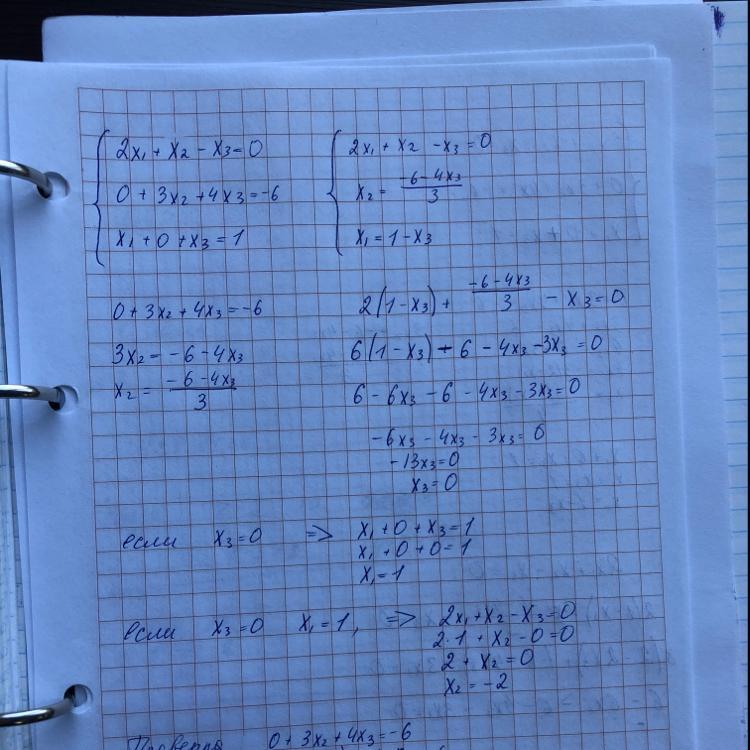 2x₁ + x₂ - x₃ = 0
0 + 3x₂ + 4x₃ = -6
x₁ + 0 + x₃ = 1
2x₁ + x₂ - x₃ = 0
x₂ = (-6 - 4x₃)/3
x₁ = 1 - x₃
0 + 3x₂ + 4x₃ = -6
3x₂ = -6 - 4x₃
x₂ = (-6 - 4x₃)/3
2(1 - x₃) + (-6 - 4x₃)/3 - x₃ = 0
6(1 - x₃) - 6 - 4x₃ - 3x₃ = 0
6 - 6x₃ - 6 - 4x₃ - 3x₃ = 0
-6x₃ - 4x₃ - 3x₃ = 0
-13x₃ = 0
x₃ = 0
если x₃ = 0 => x₁ + 0 + x₃ = 1
x₁ + 0 + 0 = 1
x₁ = 1
если x₃ = 0 x₁ = 1, => 2x₁ + x₂ - x₃ = 0
2·1 + x₂ - 0 = 0
2 + x₂ = 0
x₂ = -2
Проверка 0 + 3x₂ + 4x₃ = -6